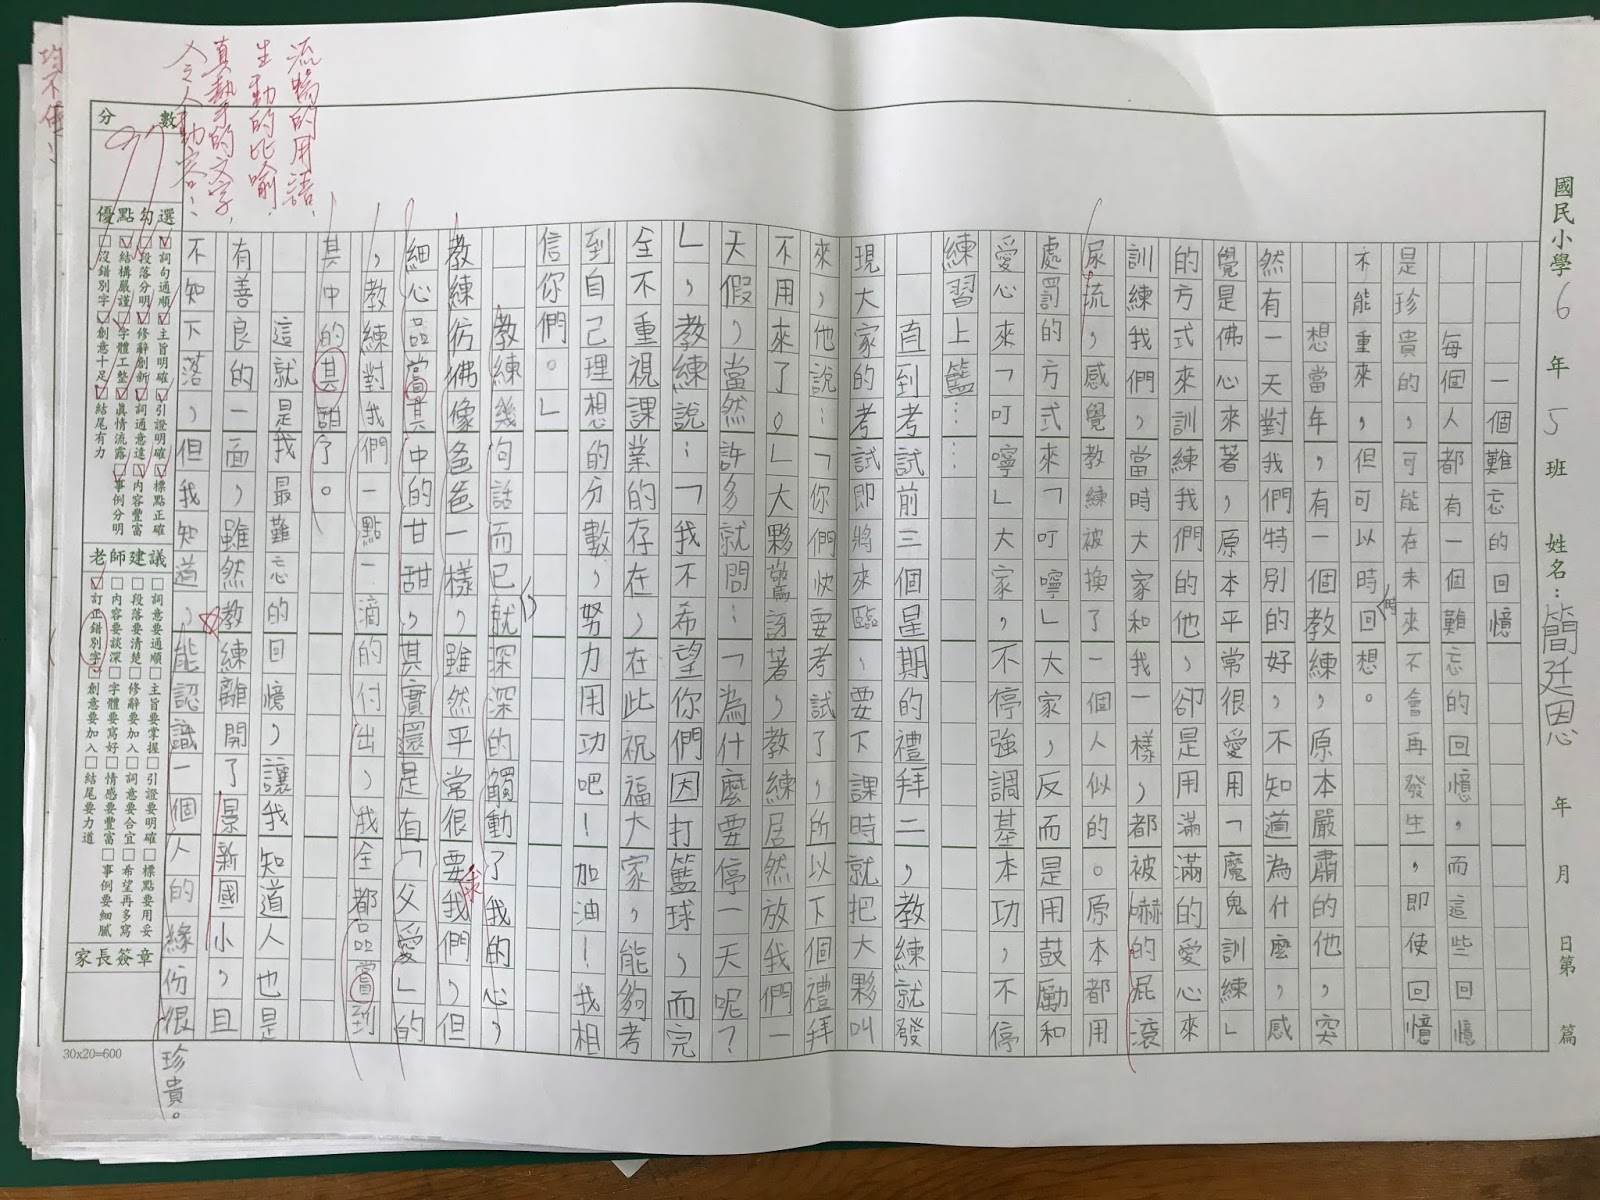 國民小學 6 年 5 班 姓名：簡廷恩 年 月 日第 篇
一個難忘的回憶
每個人都有一個難忘的回憶，而這些回憶
是珍貴的，可能在未來不會再發生，即使回憶
不能重來，但可以時回想。
時
想當年，有一個教練，原本嚴肅的他，突
然有一天對我們特別的好，不知道為什麼，感
覺是佛心來著，原本平常很愛用「魔鬼訓練」
的方式來訓練我們的他，卻是用滿滿的愛心來
訓練我們，當時大家和我一樣，都被嚇的屁滾
尿流，感覺教練被換了一個人似的。原本都用
處罰的方式來「叮嚀」大家，反而是用鼓勵和
愛心來「叮嚀」大家，不停強調基本功，不停
練習上籃……
直到考試前三個星期的禮拜二，教練就發
現大家的考試即將來臨，要下課時就把大夥叫
來，他說：「你們快要考試了，所以下個禮拜
不用來了。」大夥驚訝著，教練居然放我們一
天假，當然許多就問：「為什麼要停一天呢？
」，教練說：「我不希望你們因打籃球，而完
全不重視課業的存在，在此祝福大家，能夠考
到自己理想的分數，努力用功吧！加油！我相
信你們。」
教練幾句話而已就深深的觸動了我的心，
教練彷彿像爸爸一樣，雖然平常很要我們，但
求
細心品嘗其中的甘甜，其實還是有「父愛」的
，教練對我們一點一滴的付出，我全都品嘗到
其中的其諧了。
這就是我最難忘的回憶，讓我知道人也是
有善良的一面，雖然教練離開了景新國小，且
不知下落，但我知道，能認識一個人的緣份很珍貴。
流暢的用語，
生動的比喻，
真摯的文字，
令人動容！
分數
97
優點勾選
詞句通順 主旨明確 引證明確 標點正確
段落分明 修辭創新 詞通意達 內容豐富
結構嚴謹 字體工整 真情流露 事例分明
沒錯別字 創意十足 結尾有力
老師建議
詞意要通順 主旨要掌握 引證要明確 標點要用妥
段落要清楚 修辭要加入 詞意要合宜 希望再多寫
內容要談深 字體要寫好 情感要豐富 事例要細膩
訂正錯別字 創意要加入 結尾要力道
家長簽章
30x20=600